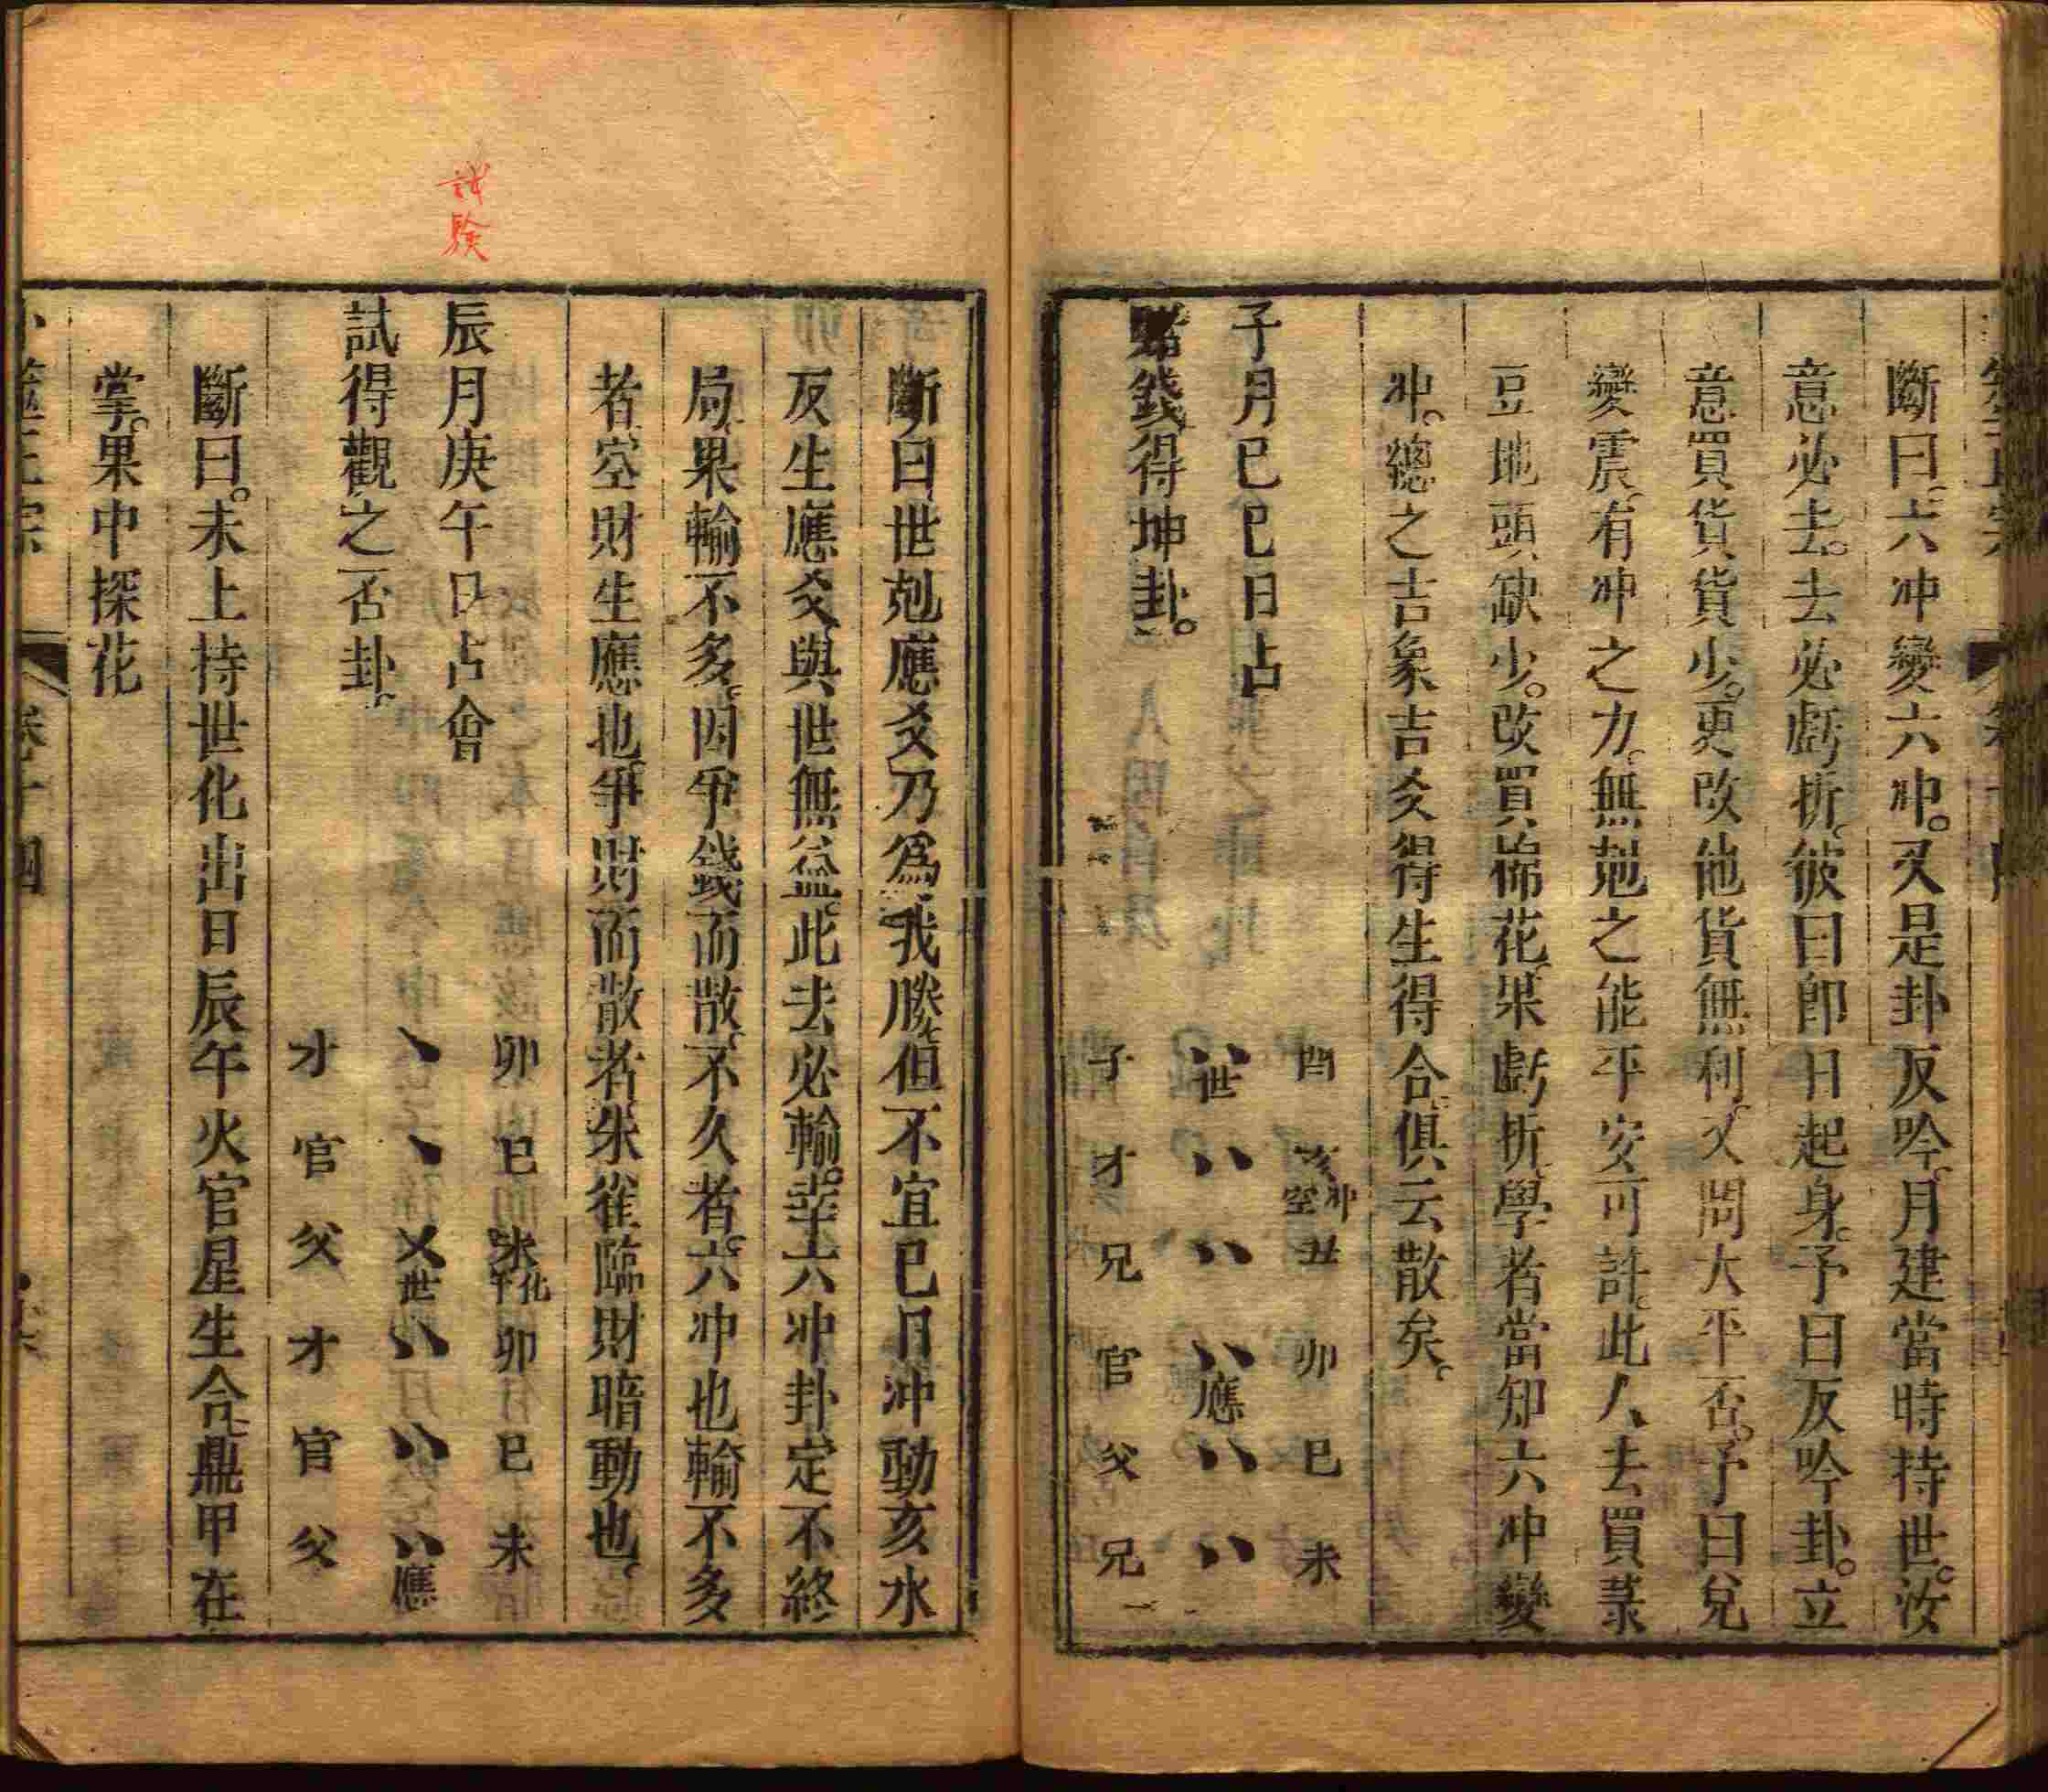 斷曰。六冲變六冲。又是卦反吟。月建當時持世。汝
意必去。去必虧折。彼曰卽日起身。予曰反吟卦。立
意買貨貨少。更改他貨無利。又問大平否。予曰兌
變震。有冲之力。無尅之能。平安可許。此人去買菉
豆地頭缺少。改買棉花。果虧折。學者當知六冲變
冲。總之吉象吉爻得生得合。俱云散矣。
子月己巳日占
賭錢得坤卦。
酉 亥冲空 丑 卯 巳 未
世 應
子 才 兄 官 父 兄
斷曰世尅應爻乃爲我勝。但不宜巳日冲動亥水
反生應爻。與世無益。此去必輸。幸六冲卦定不終
局。果輸不多。因爭錢而散。不久者。六冲也輸不多
者。空財生應也。爭財而散者朱雀臨財暗動也。
試驗
辰月庚午日占會
試得觀之否卦。
卯 巳 未化午 卯 巳 未
世 應
才 官 父 才 官 父
斷曰。未上持世化出日辰午火官星生合。鼎甲在
掌。果中探花
卜筮正宗 卷十四